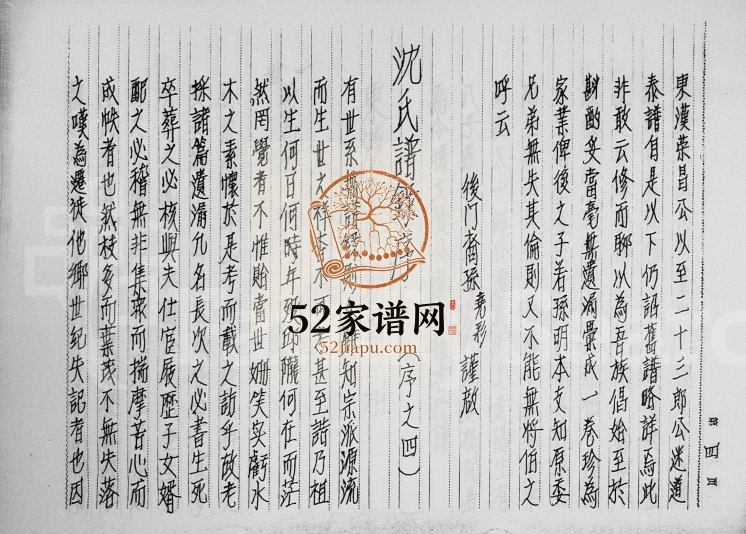 東漢榮昌公以至二十三郎公迷道
泰譜自是以下仍詔舊譜略詳焉此
非敢云修而聊以為吾族倡始至於
斟酌妥當毫無遺漏彙成一卷珍為
家業俾後之子若孫明本支知原委
兄弟無失其倫則又不能無將伯之
呼云
後門裔孫堯彩謹啟
沈氏譜
(序之四)
有世系
知宗派源流
而生世
不
甚至諾乃祖
以生何日何時年
何在而茫
然罔覺者不惟貽當世姍笑实虧水
木之素懷於是考而載之訪乎故老
採諸篇遺漏允名長次之必書生死
卒葬之必核與夫仕宦履歷子女婿
配之必稽無非集
而揣摩苦心而
成帙者也然枝多而葉茂不無失落
之嘆為遷徙他鄉世紀失記者也因
第四頁
52家谱网
52jiapu.com